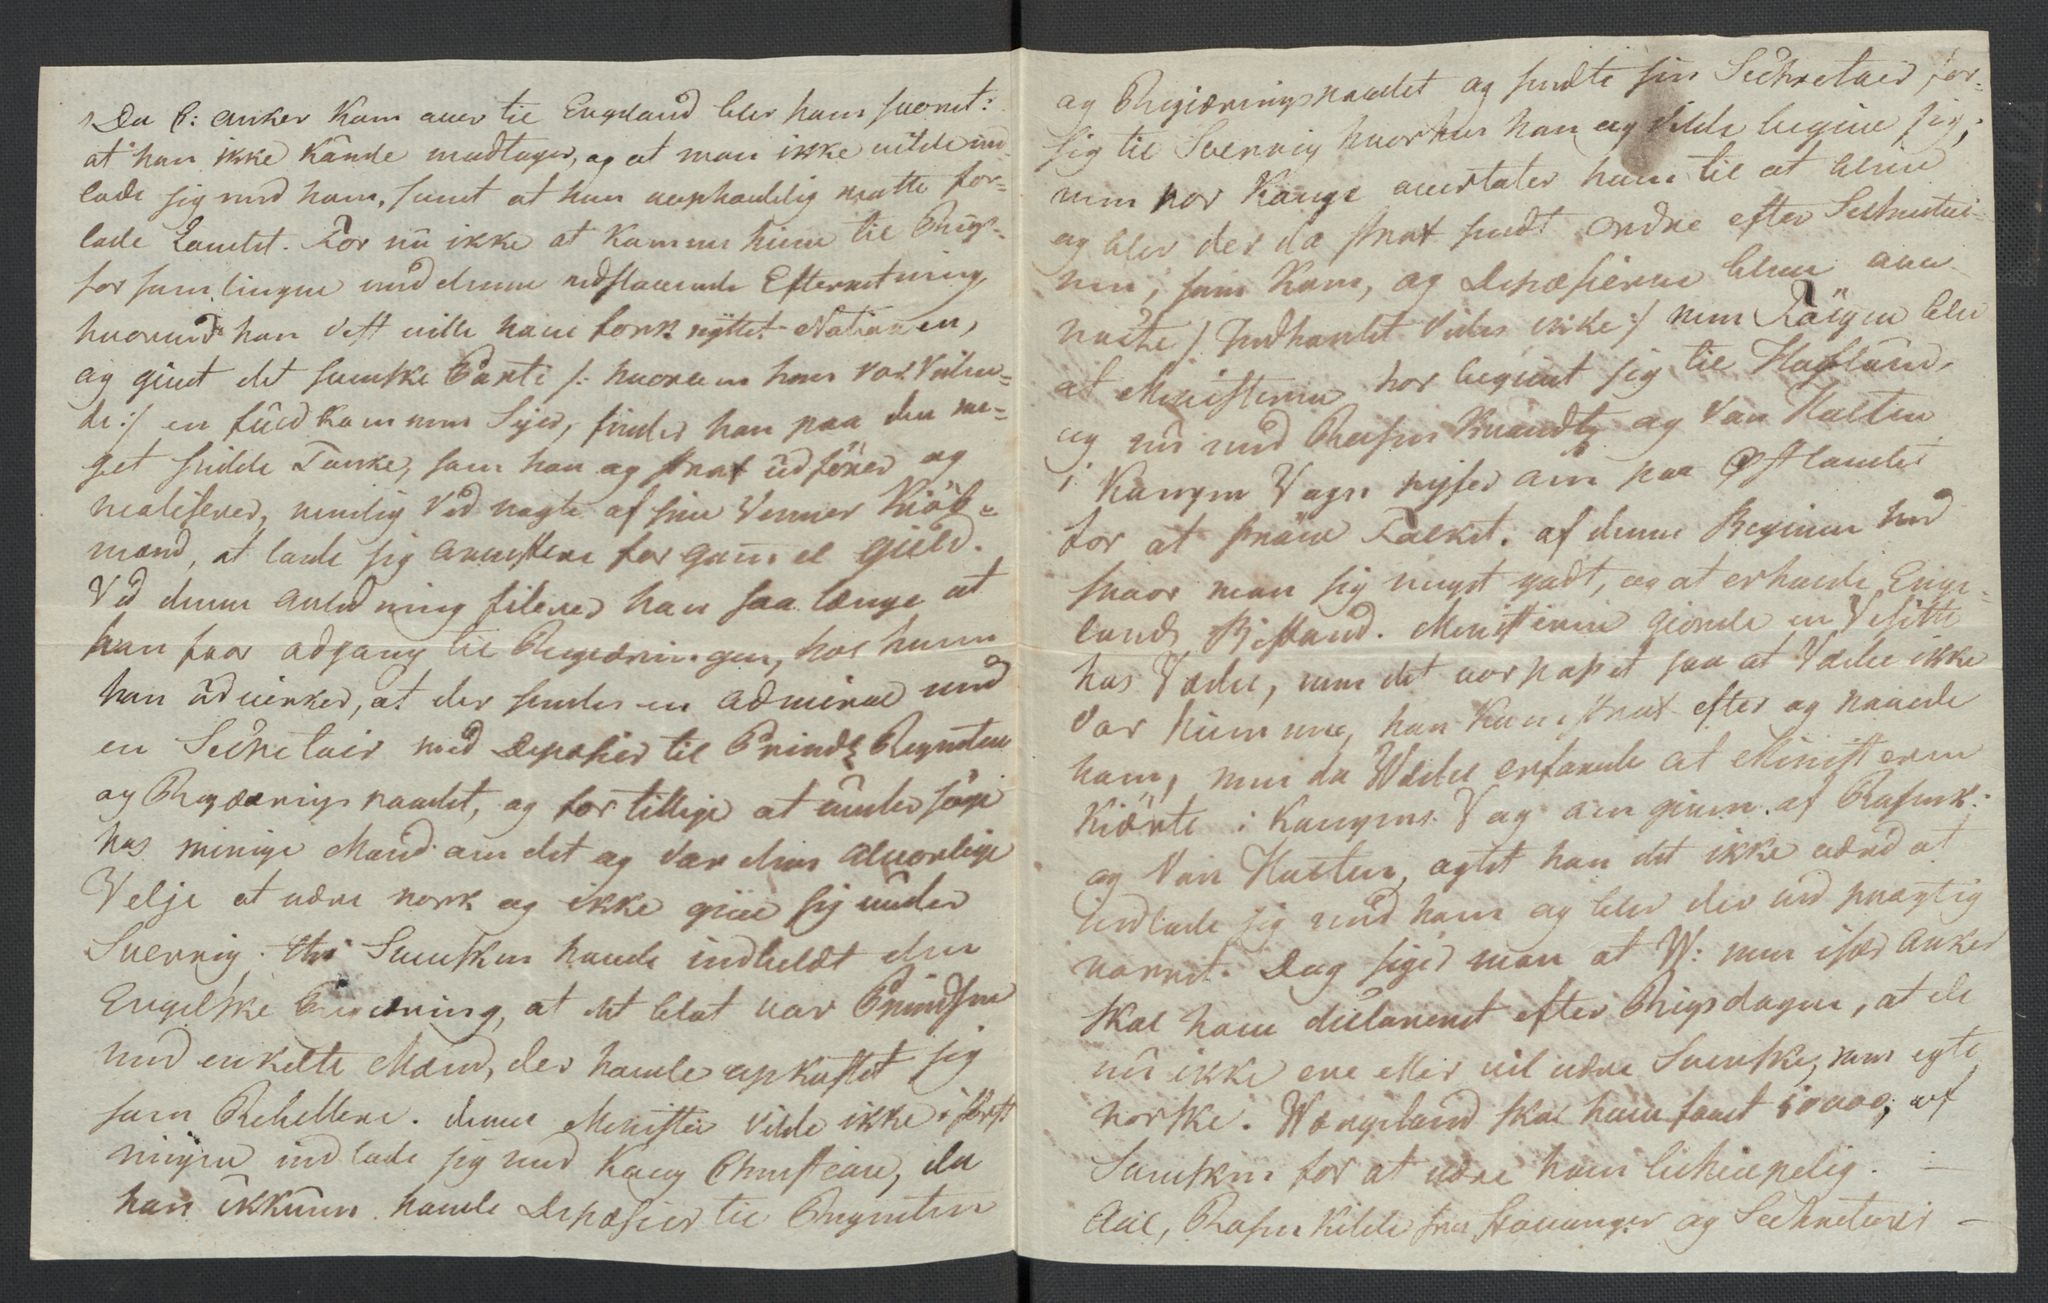 Da C: Anker kom over til England blev ham svaret:
at han ikke kunde modtages, og at man ikke vilde ind-
lade sig med ham, samt at han uopholdelig motte for-
lade Landet. For nu ikke at komme hiem til Rigs-
forsamlingen med denne nedslaaende Efterretning,
hvorved han vist ville have forknyttet Nationen,
og givet det svenske Parti /: hvorom han var Viden-
de :/ en fuldkommen Sejer, finder han paa den me-
get snilde Tanke, som han og strax udförer og
realiserer, nemlig ved nogle af sine Venner Kiöb-
mænd, at lade sig arrestere for gammel gield.
Ved denne anledning filerer han saa længe at
han faar adgang til Regieringen, hos hvem
han udvirker, at der sendes en Admiral med
en Secretair med Depescher til Prinds Regenten
og Regieringsraadet, og for tillige at undersöge
hos menige Mand om det og var deres alvorlige
Velje at være norsk og ikke give sig under
Sverrig. thi Svensken havde indbildt den
Engelske Regiering, at det blot var Prindsen
med enkelte Mænd, der havde opkastet sig
som Rebellere. denne Minister vilde ikke i först
ningen indlade sig med Kong Christian, da
han ikkuns havde Depescher til Regenten
og Regieringsraadet og sendte sin Secretair for-
sig til Sverrig hvorhen han og vilde begive sig;
men vor Konge overtaler ham til at blive
og blev der da strax sendt Ordre efter Secretai-
ren; som kom, og Depescherne bleve aab-
nede / Indholdet vides ikke :/ men Fölgen blev
at Ministeren har begivet sig til Hafslund,
og nu med Rosenkrandtz og Van Halten
i Kongens Vogn rejser om paa Östlandet
for at pröve Folket. af denne Begivenhed
spaar man sig meget godt, og at erholde Eng-
lands Bistand. Ministeren giorde en Visitte
hos Wedel, men det var passet saa at Wedel ikke
var hiemme, han kom strax efter og naaede
ham, men da Wedel erfarede at Ministeren
kiörte i Kongens Vogn omgiven af Rosenk:
og Van Halten, agtet han det ikke værd at
indlade sig med ham og blev der ved pragtig
narret. Dog siger man at W: men især Anker
skal have declareret efter Rigsdagen, at de
nu ikke ere eller vil være Svenske, men egte
norske. Wergeland skal have faaet 10000, af
Svensken for at være ham behielpelig.
Aal, Rosenkilde fra Stavanger og Secretair